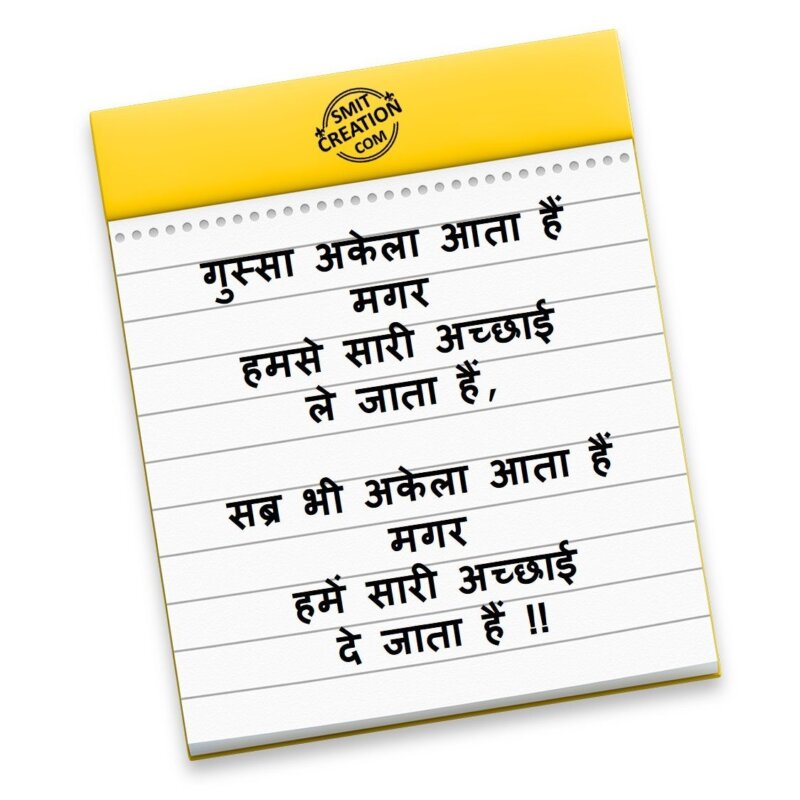 SMIT
CREATION
COM
गुस्सा अकेला आता हैं
मगर
हमसे सारी अच्छाई
ले जाता हैं,
सब्र भी अकेला आता हैं
मगर
हमें सारी अच्छाई
दे जाता हैं !!